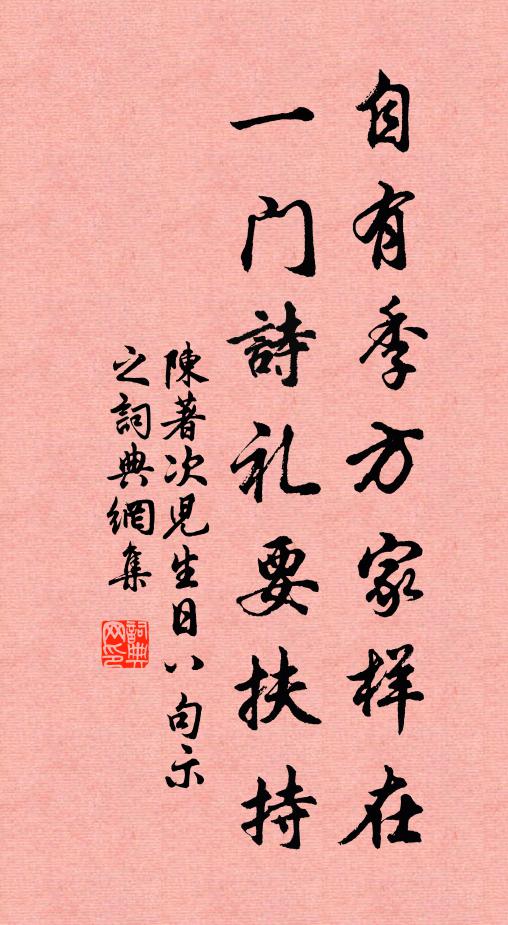 自有季方家样在
一门詩礼要扶持
陳著次児生日八句示
之詞典網集
詞典网印